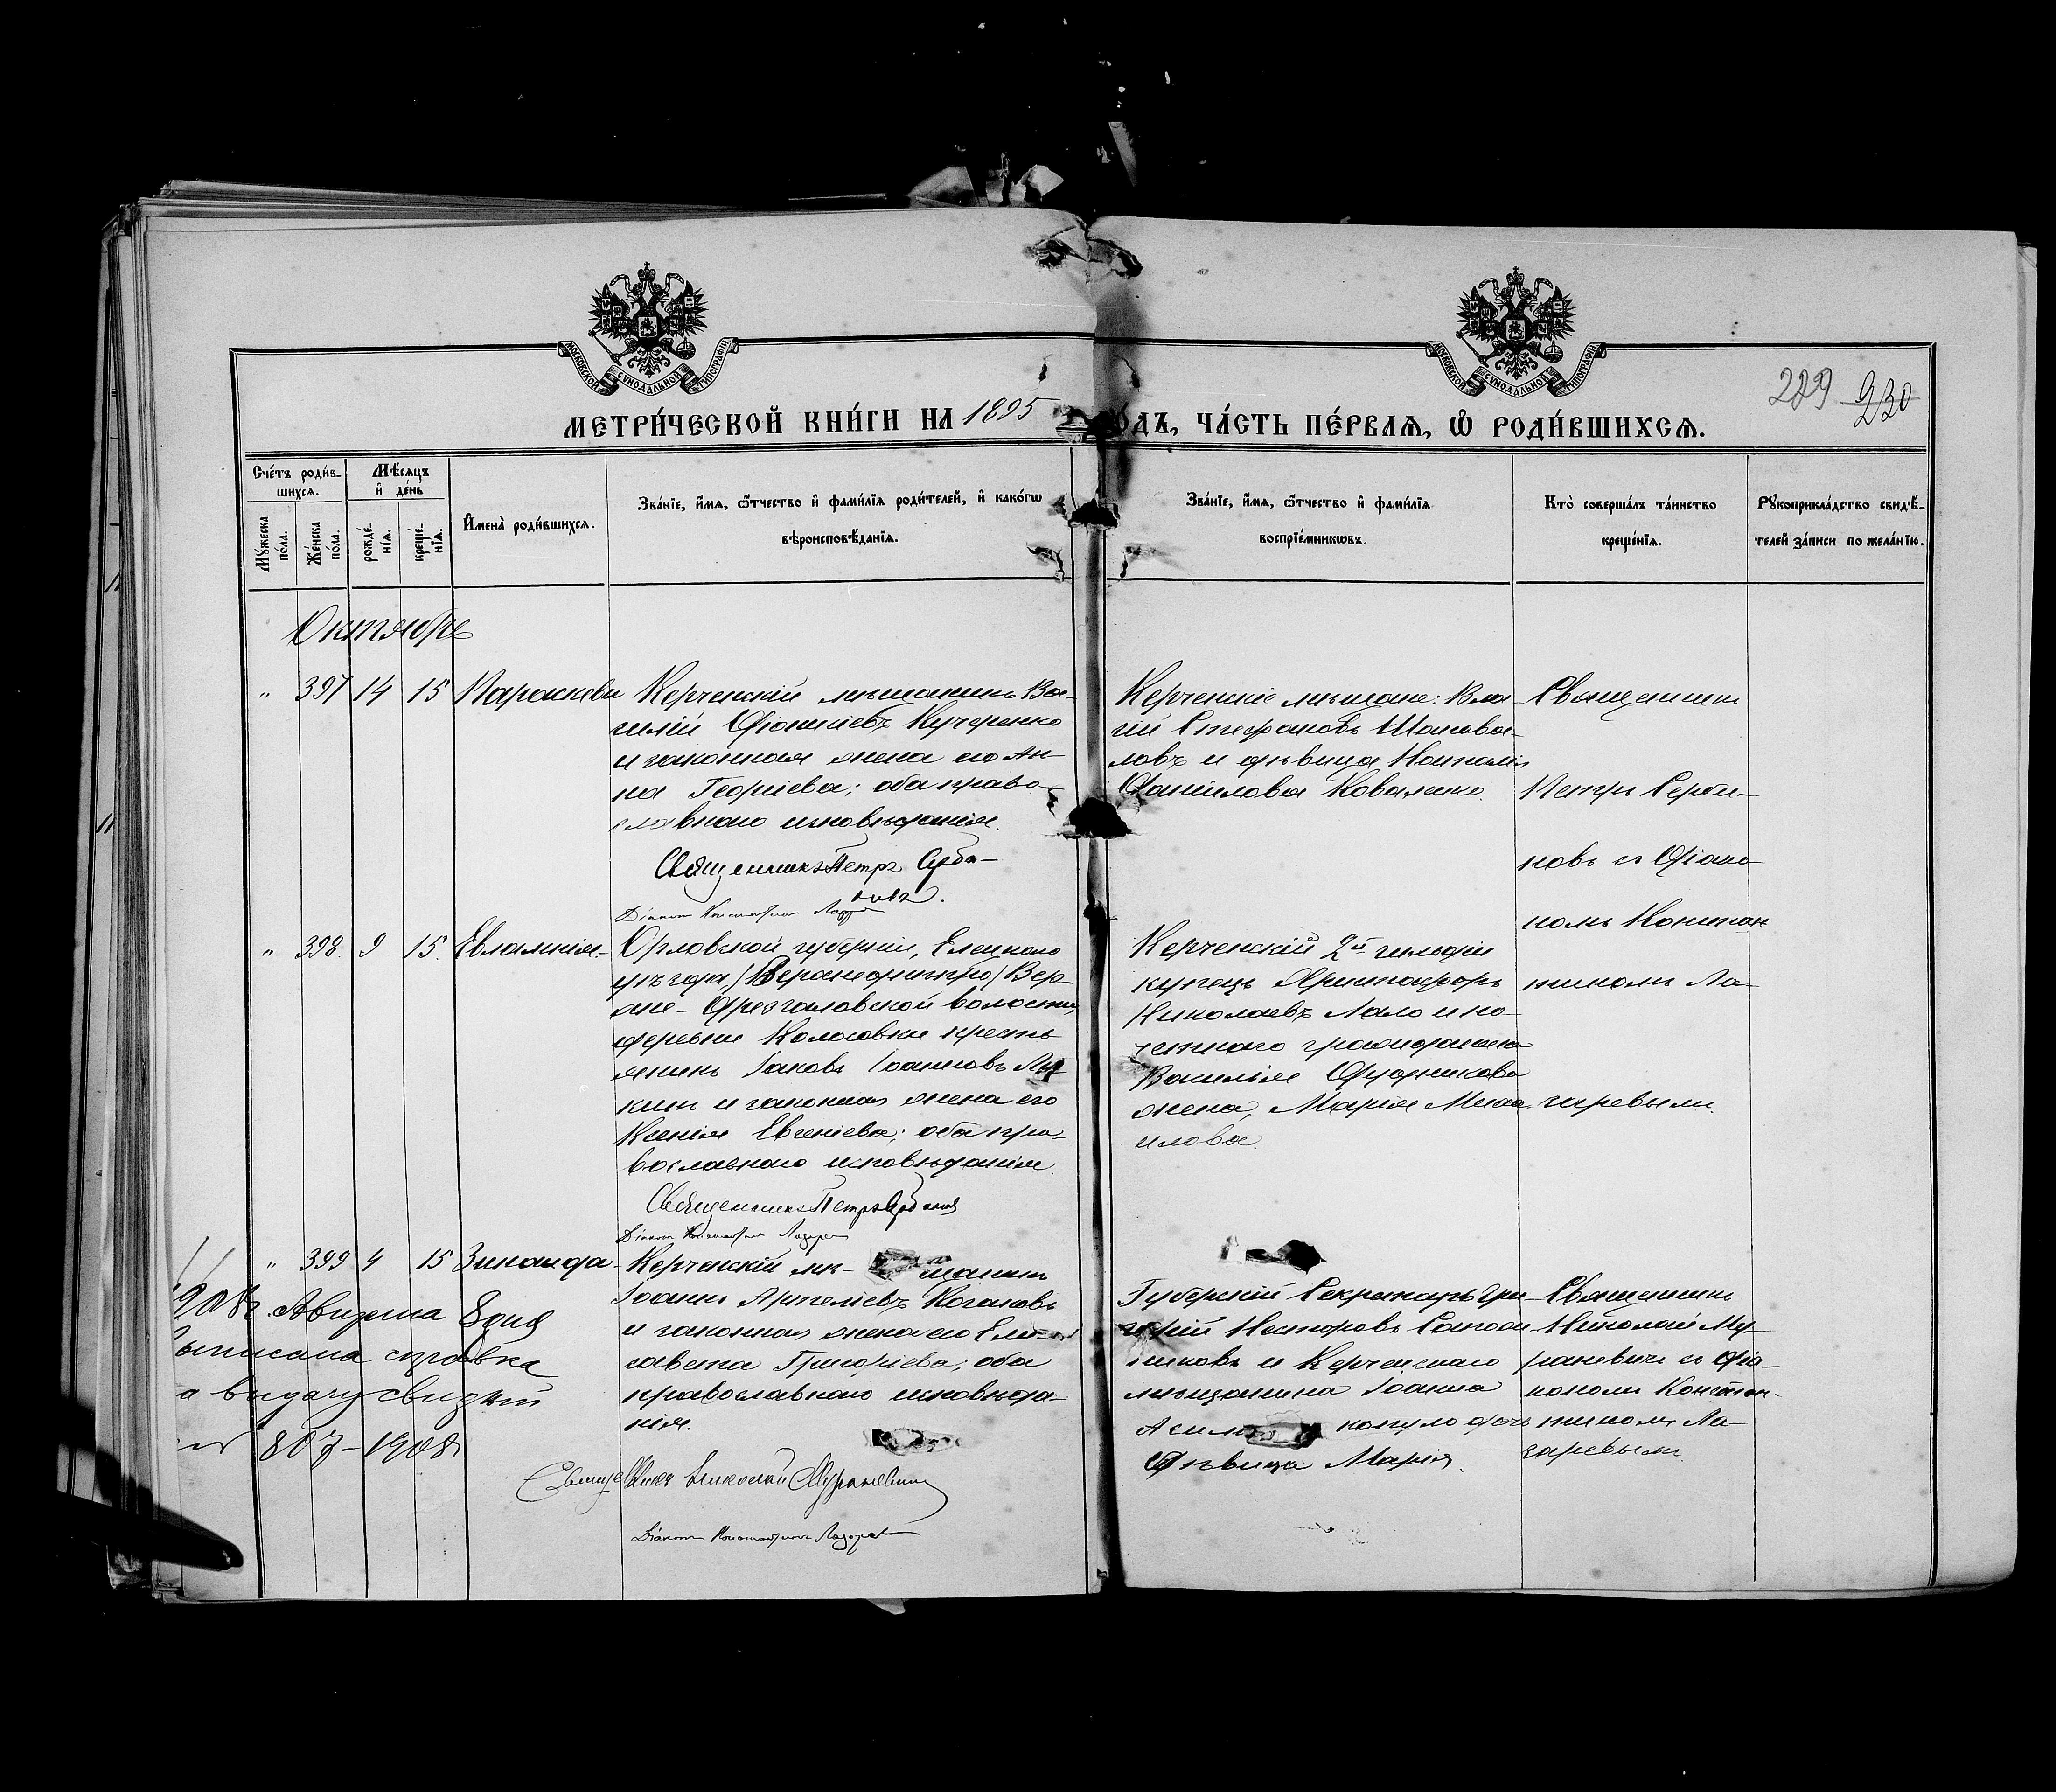 МОСКОВСКОЙ СѴНОДАЛЬНОЙ ТИПОГРАФІИ
МОСКОВСКОЙ СѴНОДАЛЬНОЙ ТИПОГРАФІИ
229 230
МЕТРИ́ЧЕСКОЙ КНИ́ГИ НА 1895 ГО́ДЪ, ЧА́СТЬ ПЕ́РВАѦ, Ѡ҆ РОДИ́ВШИХСѦ.
Сче́тъ роди́в-
шихсѧ.
Мꙋ́жеска по́ла.
Же́нска по́ла.
Мѣ́сѧцъ
и҆ де́нь
рожде́нїѧ.
креще́нїѧ.
И҆мена̀ роди́вшихсѧ.
Зва́нїе, и҆́мѧ, ѻ҆́тчество и҆ фами́лїѧ роди́телей, и҆ како́гѡ
вѣроисповѣ́данїѧ.
Зва́нїе, и҆́мѧ, ѻ҆́тчество и҆ фами́лїѧ
воспрїе́мникѡвъ.
Кто̀ соверша́лъ та́инство
креще́нїѧ.
Рꙋкоприкла́дство свидѣ́-
телей за́писи по жела́нїю.
Октябрь
" 397 14 15 Параскева
Керченскій мѣщанинъ Ва-
силій Кучеренко
и законная жена его Ан-
на Георгіева; оба право-
славнаго исповѣданія.
Священникъ Петръ Серба-
новъ.
Діаконъ Константинъ Лазарев
Керченскіе мѣщане:
Стефановъ Шапова-
ловъ и дѣвица Наталія
Даніилова Коваленко.
Священникъ
Петръ Серба-
новъ съ Діако-
номъ Констан-
тиномъ Ла-
заревымъ.
" 398. 9 15. Евлампія.
Орловской губерніи, Елецкаго
уѣзда, Вер-
хне-Дрезгаловской волости,
деревни Колосовки крестья-
янинъ Іаковъ Іоанновъ
кинъ и законная жена его
Ксенія Евгеніева; оба пра-
вославнаго исповѣданія.
Священникъ Петръ Сербановъ
Діаконъ Константинъ Лазарев
Керченскій 2й гильдіи
купецъ Христофоръ
Николаевъ Лало и по-
четнаго гражданина
Василія
жена, Марія Миха-
илова.
" 399 4 15 Зинаида
Керченскій мѣ- щанинъ
Іоаннъ Когановъ
и законная жена его Ели-
савета Григоріева; оба
православнаго исповѣда-
нія.
Священникъ Николай Мураневичъ
Діаконъ Константинъ Лазарев
Губерскій Секретарь Гри-
горій Несторовъ
и Керченскаго
мѣщанина Іоанна
дочь
дѣвица Марія.
Священникъ
Николай Му-
раневичъ съ Діа-
кономъ Констан-
тиномъ Ла-
заревымъ.
1908г. Августа 8 дня
выписана справка
на выдачу свидѣт
807-1908